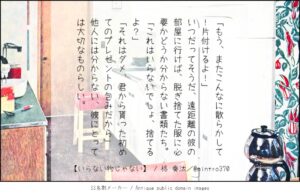 「もう、またこんなに散らかして
！片付けるよ！」
いつだってそうだ、遠距離の彼の
部屋に行けば、脱ぎ捨てた服に必
要かどうか分からない書類たち。
「これはいらないでしょ、捨てる
よ？」
「それはダメ、君から貰った初め
てのプレゼントの包みだから」
他人には分からない、彼にとって
は大切なものらしい。
【いらない物じゃない】／柊 奏汰／@aintro370
SS名刺メーカー / Antique public domain images